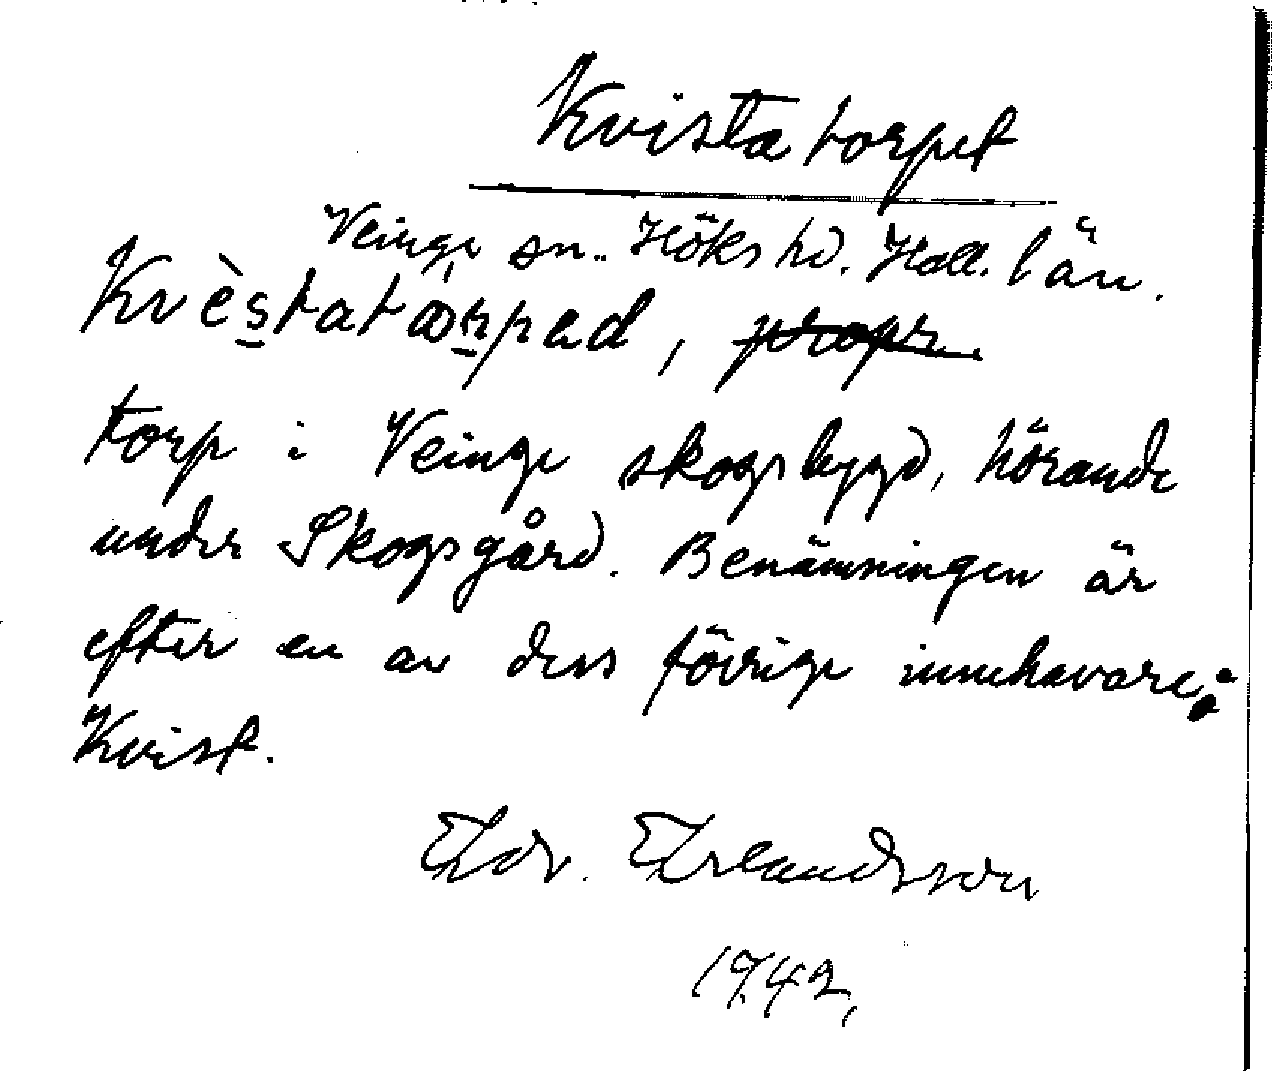 Kvistatorpet
Veinge sn. Höks hd. Hall. län.
torp i Veinge skogsbygd, hörande
under Skogsgård. Benämningen är
efter en av dess förrige innehavare:
Kvist.
Edv. Erlandsson
1942,